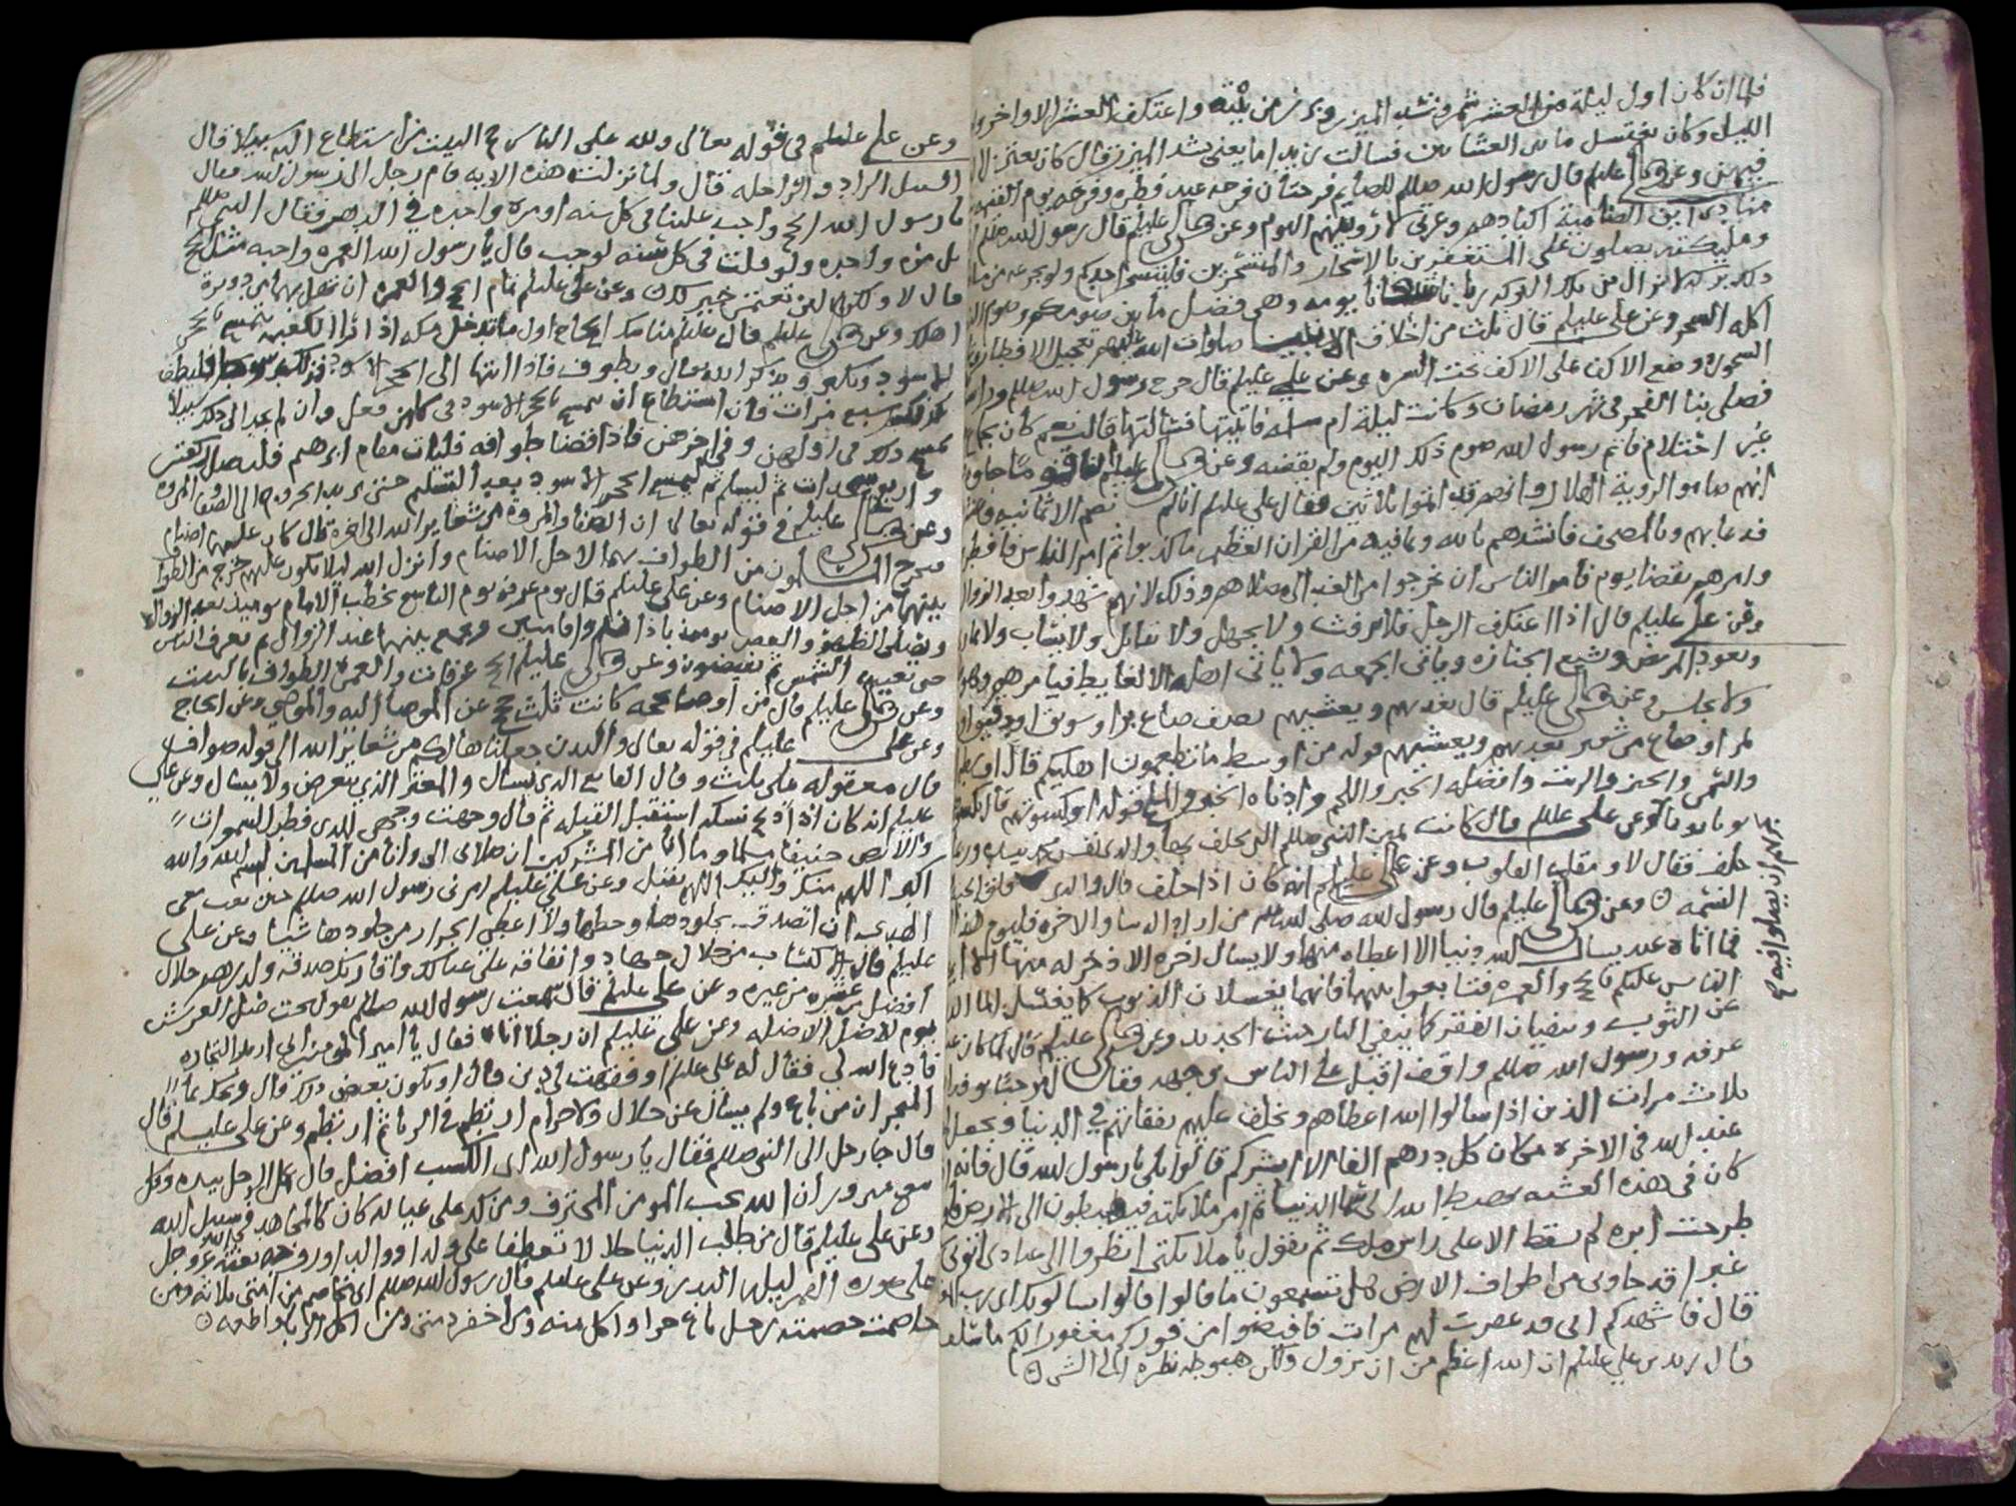 فلما ان كان اول ليلة من العشر شمر وشد الميزر وبرز من بيته واعتكف العشر الاواخر واحيا
الليل وكان يغتسل ما بين العشاين فسالت زيدا ما يعني شد الميزر قال كان يعتزل
فيهن وعن علي عليلم قال رسول الله صللم للصايم فرحتان فرحه عند فطره وفرحه يوم القيمه
منادي اين الضاميه اكبادهم وعزتي لاروينهم اليوم وعن علي عليلم قال رسول الله صللم
ومليكته يصلون على المستغفرين بالاسحار والمتسحرين فليتسحر احدكم ولو بجرعه من ما
ذلك بركه لا تزال من تلك البركه يومه وهي فضل ما بين صومكم وصوم
اكله السحور وعن علي عليلم قال ثلث من اخلاق الانبيا صلوات الله عليهم تعجيل الافطار
السحور ووضع الاكف على الاكف تحت السره وعن علي عليلم قال خرج رسول الله صللم وراسه
فصلى بنا الفجر في شهر رمضان وكانت ليلة ام سلمه فاتيتها فسالتها قالت نعم كان
غير احتلام فاتم رسول الله صوم ذلك اليوم ولم يقضه وعن علي عليلم
انهم صاموا لروية الهلال وانهم قد اتموا ثلاثين فقال علي عليلم انا لم نصم الا ثمانيه
فدعا بهم وبالمصحف فانشدهم بالله وبما فيه من القران العظيم ما كذبوا ثم امر الناس فافطروا
وامرهم بقضا يوم فامر الناس ان يخرجوا من الغد الى مصلاهم وذلك لانهم شهدوا بعد الزوال
وعن علي عليلم قال اذا اعتكف الرجل فلا يرفث ولا يجهل ولا يقاتل ولا يساب ولا يمار
ويعود المريض ويشيع الجنازه وياتي الجمعه ولا ياتي اهله الا لغايط فيامرهم
ولا يجلس وعن علي عليلم قال يغديهم ويعشيهم نصف صاع برا او سويق او دقيق او
تمر او صاع من شعير يغديهم ويعشيهم قوله من اوسط ما تطعمون اهليكم قال
والتمر والخبز والزيت وافضله الخبز واللحم وادناه الخبز والملح قوله او كسوتهم قال
ثوبا ثوبا وعن علي عليلم قال كانت يمين النبي صللم التي يحلف بها والذي نفس محمد بيده
حلف فقال لا ومقلب القلوب وعن علي عليلم انه كان اذا حلف قال والذي فلق الحبه
النسمه ۝ وعن علي عليلم قال رسول الله صلى الله عليه من اراد الدنيا والاخره فليوم هذا
فما اتاه عبد يسال الله دنيا الا اعطاه منها ولا يسال اخره الا ذخر له منها
الناس عليكم بالحج والعمره فتابعوا بينهما فانهما يغسلان الذنوب كما يغسل الما
عن الثوب وينفيان الفقر كما ينفي النار خبث الحديد وعن علي عليلم قال لما كان
عرفه ورسول الله صللم واقف اقبل على الناس بوجهه فقال مرحبا بوفد
ثلاث مرات الذين اذا سالوا الله اعطاهم ويخلف عليهم نفقاتهم في الدنيا ويجعل
عند الله في الاخره مكان كل درهم الفا الا ابشركم قالوا بلى يا رسول الله قال فانه
كان في هذه العشيه هبط الله الى سما الدنيا ثم امر ملائكته فيهبطون الى الارض فلو
طرحت ابره لم تسقط الا على راس ملك ثم يقول يا ملائكتي انظروا الى عبادي اتوني
غبرا قد جاوني من اطراف الارض هل تسمعون ما قالوا قالوا يسالونك اي رب
قال فاشهدكم اني قد غفرت لهم ثلاث مرات فافيضوا من موقفكم مغفورا لكم ما سلف
قال زيد بن علي عليلم ان الله اعظم من ان يزول ولكن هبوطه نظره الى الشي ۝
وعن علي عليلم في قوله تعالى ولله على الناس حج البيت من استطاع اليه سبيلا قال
السبيل الزاد والراحله قال ولما نزلت هذه الايه قام رجل الى رسول الله فقال
يا رسول الله الحج واجب علينا في كل سنه او مره واحده في الدهر فقال النبي صللم
بل مره واحده ولو قلت في كل سنه لوجب قال يا رسول الله العمره واجبه مثل الحج
قال لا ولكن لان تعتمر خير لك وعن علي عليلم تمام الحج والعمره ان تهل بهما من دويرة
اهلك وعن علي عليلم قال مناسك الحاج اول ما تدخل مكه اذا اتا الكعبه يتمسح بالحجر
الاسود ويكبر ويذكر الله تعالى ويطوف فاذا انتها الى الحجر الاسود فذلك شوط فليطف
كذلك سبع مرات فان استطاع ان يمسح بالحجر الاسود في كلهن فعل وان لم يجد الى ذلك سبيلا
مسح ذلك في اولهن وفي اخرهن فاذا قضا طوافه فليات مقام ابرهيم فليصل ركعتين
واربع سجدات ثم ليسلم ثم ليمسح الحجر الاسود بعد التسليم حين يريد الخروج الى الصفا والمروه
وعن علي عليلم في قوله تعالى ان الصفا والمروة من شعاير الله الى اخره قال كان عليهما اصنام
فتحرج المسلمون من الطواف بهما لاجل الاصنام وانزل الله ليلا يكون عليهم حرج من الطواف
بينهما من اجل الاصنام وعن علي عليلم قال يوم عرفه يوم التاسع يخطب الامام يوميذ بعد الزوال
ويصلي الظهر والعصر يوميذ باذان واقامتين ويجمع بينهما عند الزوال ثم يعرف الناس
حتى تغيب الشمس ثم يفيضون وعن علي عليلم الحج عرفات والعمرة الطواف بالبيت
وعن علي عليلم قال من اوصا بحجه كانت ثلث حجج عن الموصا اليه والموصي وعن الحاج
وعن علي عليلم في قوله تعالى والبدن جعلناها لكم من شعاير الله الى قوله صواف
قال معقوله على ثلث وقال القانع الذي يسال والمعتر الذي يتعرض ولا يسال وعن علي
عليلم انه كان اذا ذبح نسكه استقبل القبله ثم قال وجهت وجهي للذي فطر السموات
والارض حنيفا مسلما وما انا من المشركين ان صلاتي الى وانا من المسلمين بسم الله والله
اكبر اللهم منك واليك اللهم تقبل وعن علي عليلم امرني رسول الله صللم حين بعث معي
الهدي ان اتصدق بجلودها وخطمها ولا اعطي الجزار من جلودها شيا وعن علي
عليلم قال الاكتساب من حلال جهاد وانفاقه على عيالك واقاربك صدقه ولدرهم حلال
افضل من عشره من غيره وعن علي عليلم قال سمعت رسول الله صللم يقول تحت ظل العرش
يوم لا ظل الا ظله وعن علي عليلم ان رجلا اتاه فقال يا امير المومنين اني اريد التجاره
فادع الله لي فقال له علي عليلم او فقهت في دين قال او يكون بعض ذلك قال ويحك
المتجر ان من باع ولم يسال عن حلال ولا حرام ارتطم في الربا ثم ارتطم وعن علي عليلم قال
قال جا رجل الى النبي صللم فقال يا رسول الله اي الكسب افضل قال عمل الرجل بيده وكل
بيع مبرور ان الله يحب المومن المحترف ومن كد على عياله كان كالمجاهد في سبيل الله
وعن علي عليلم قال من طلب الدنيا حلالا تعطفا على ولد او والد او زوجه بعثه الله عز وجل
على صوره القمر ليله البدر وعن علي عليلم قال رسول الله صللم اني مخاصم من امتي ثلاثه ومن
خاصمت خصمته رجل باع حرا واكل ثمنه ومن اخفر ذمتي ومن اكل الربا واطعمه ۝